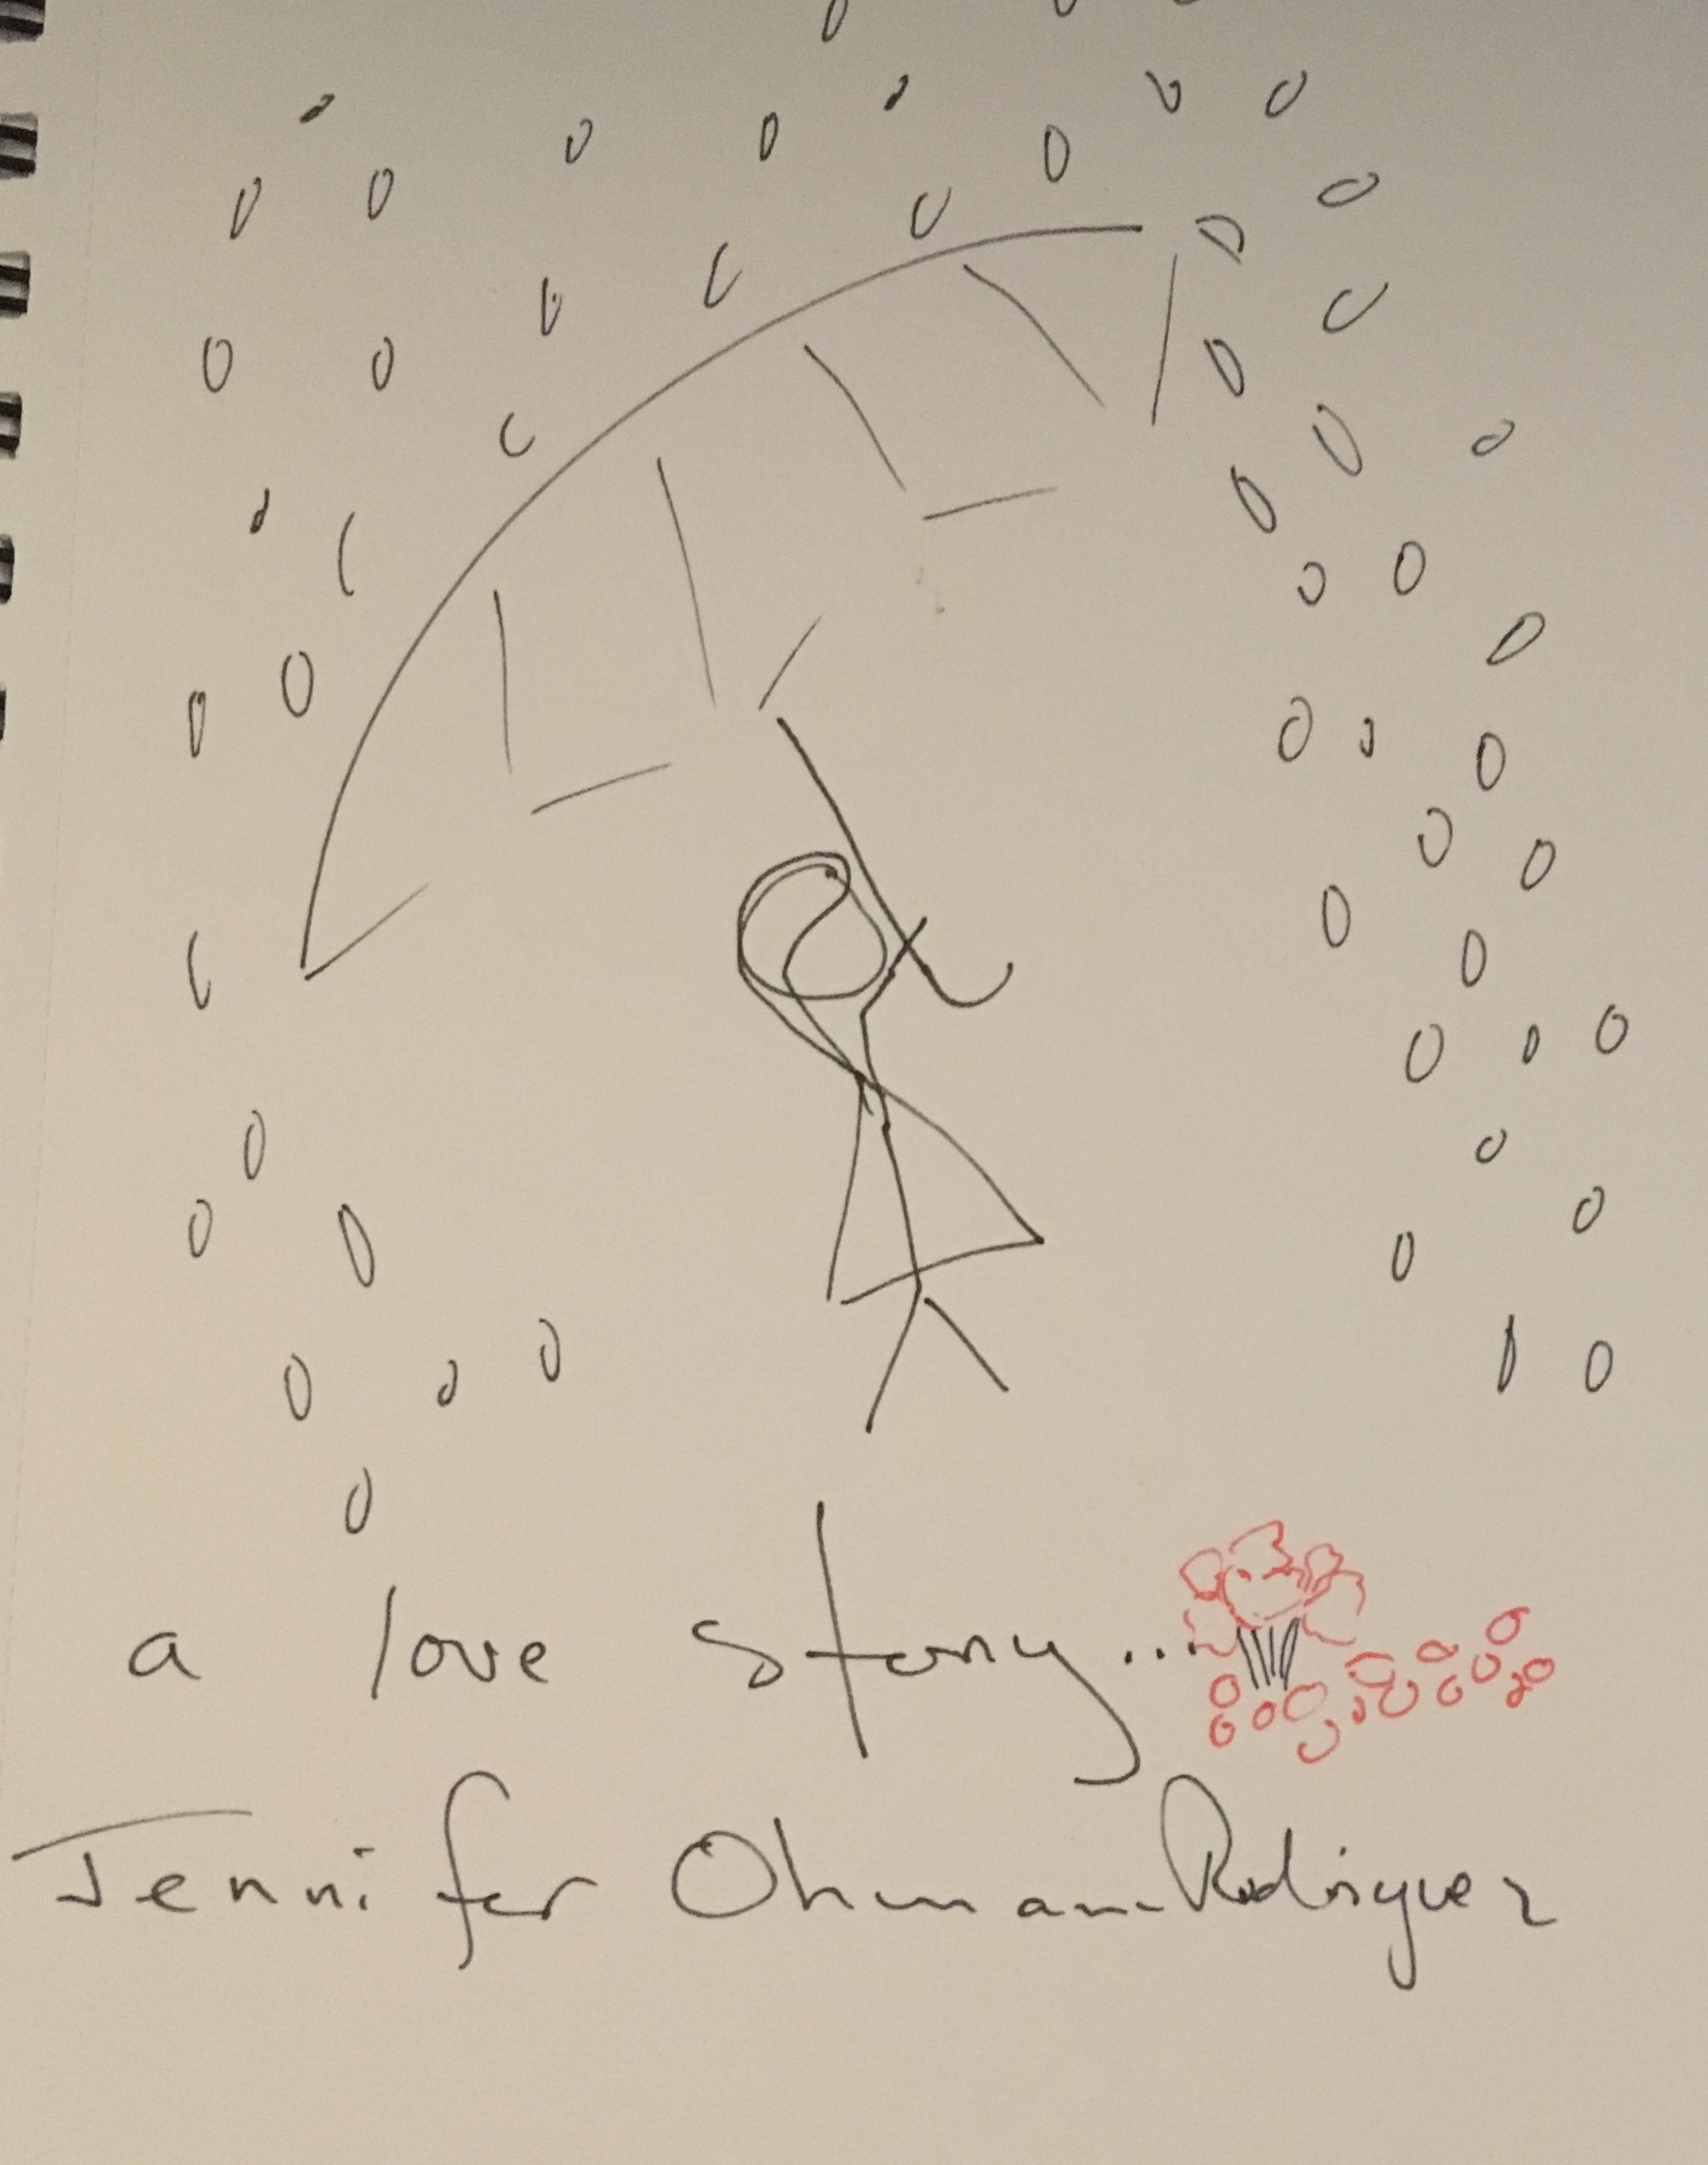 a love story...
Jennifer Ohman-Rodriguez